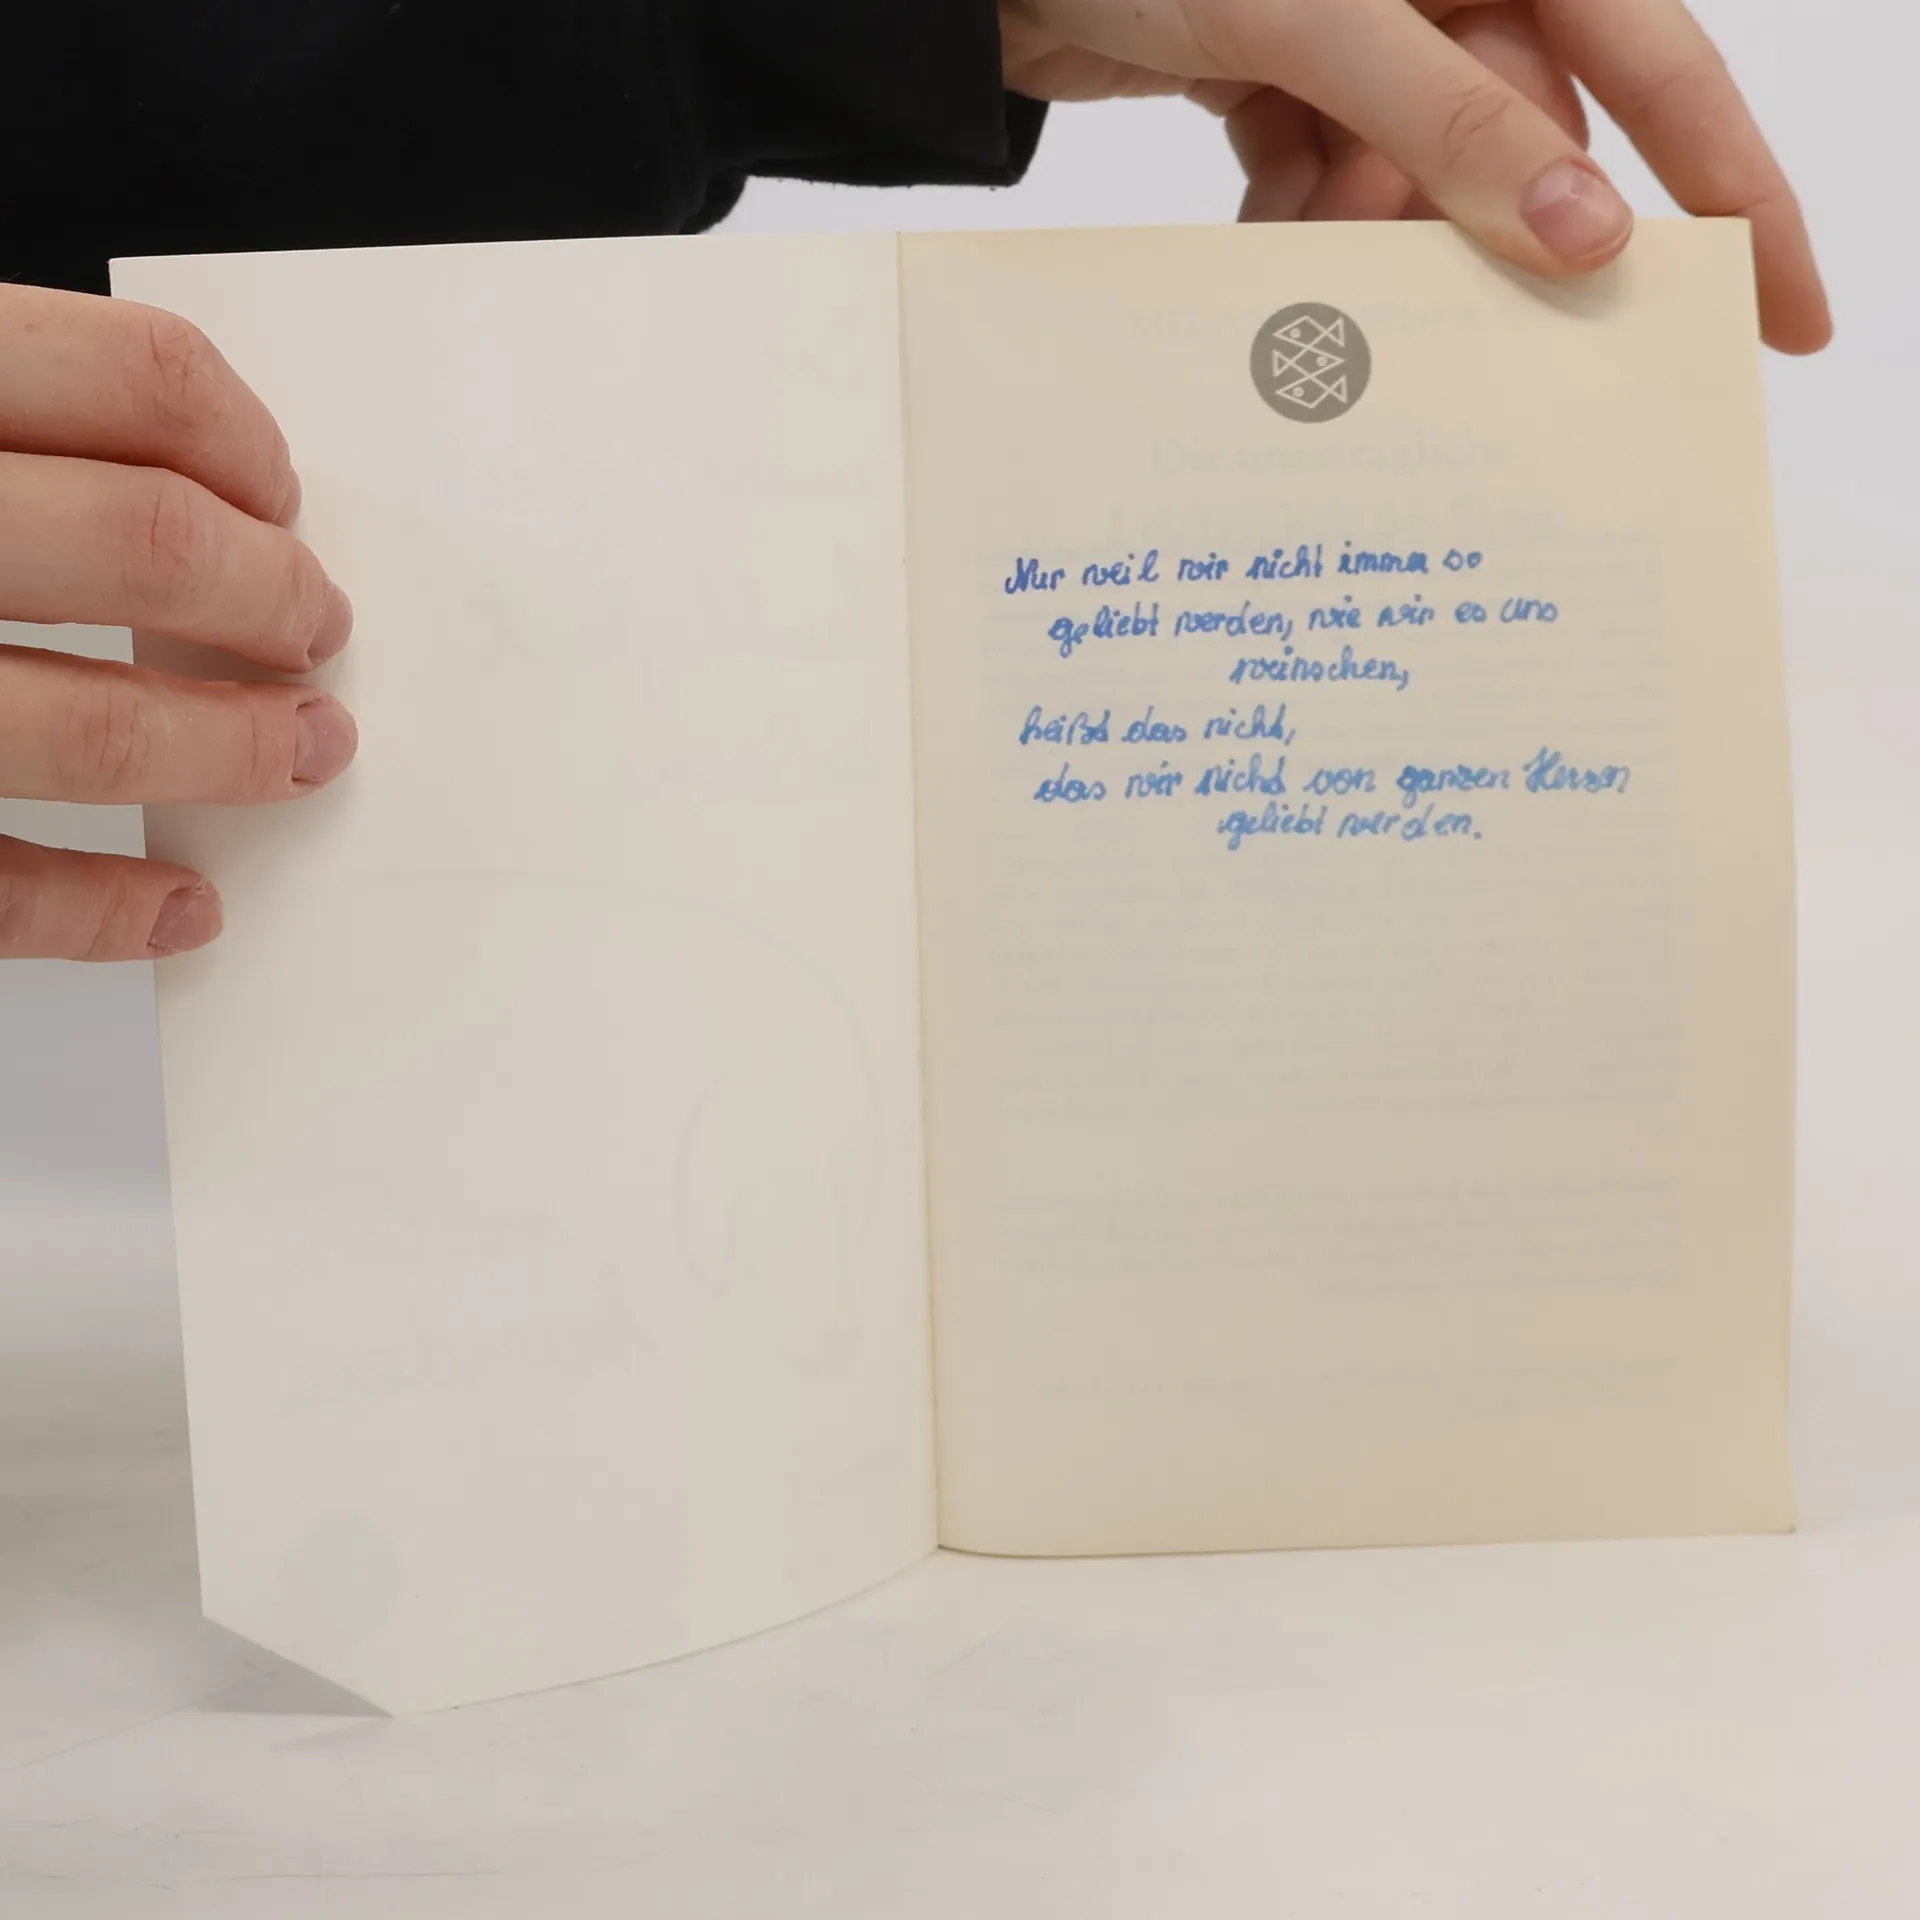 Nur weil wir nicht immer so
geliebt werden, wie wir es uns
wünschen,
heißt das nicht,
das wir nicht von ganzen Herzen
geliebt werden.
Die unerträgliche
Leichtigkeit des Seins